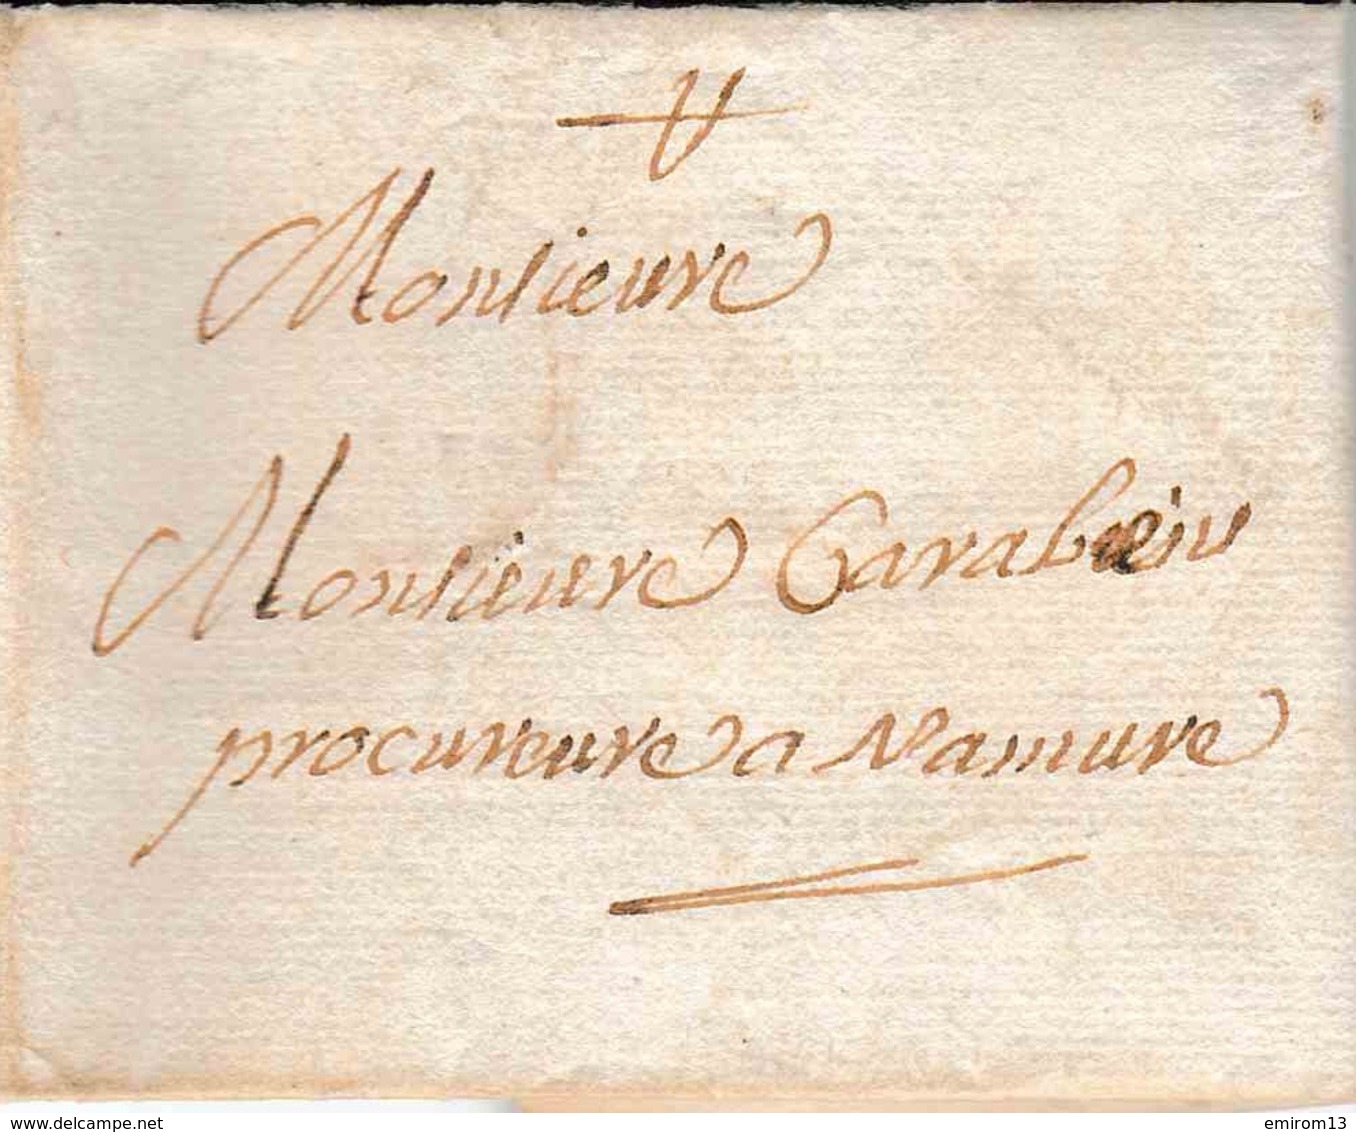 Monsieure
Monsieure Carabein
procureure a Namure
www.delcampe.net
emirom13